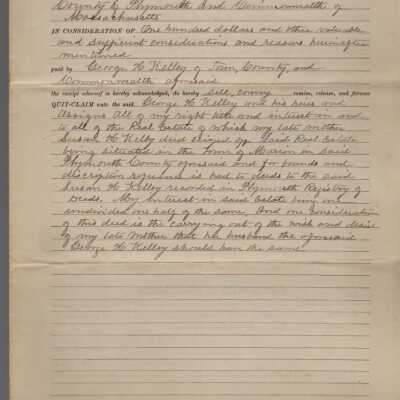 County of Plymouth and Commonwealth of
Massachusetts
IN CONSIDERATION OF One hundred dollars and other valuable
and sufficient considerations and reasons hereinafter
mentioned
paid by George H Kelley of Town, County, and
Commonwealth aforesaid
the receipt whereof is hereby acknowledged, do hereby sell, convey remise, release, and forever
QUIT-CLAIM unto the said George H Kelley and his heirs and
assigns all of my right title and interest in and
to all of the Real Estate of which my late mother
Susan H Kelley died seized of. Said Real Estate
being situated in the Town of Marion in said
Plymouth County aforesaid and for bounds and
discription refference is had to deeds to the said
Susan H Kelley recorded in Plymouth Registry of
Deeds. My Interest in said Estate being one
undivided one half of the same. And one consideration
of this deed is the carrying out of the wish and desire
of my late mother that her husband the aforesaid
George H Kelley should have the same